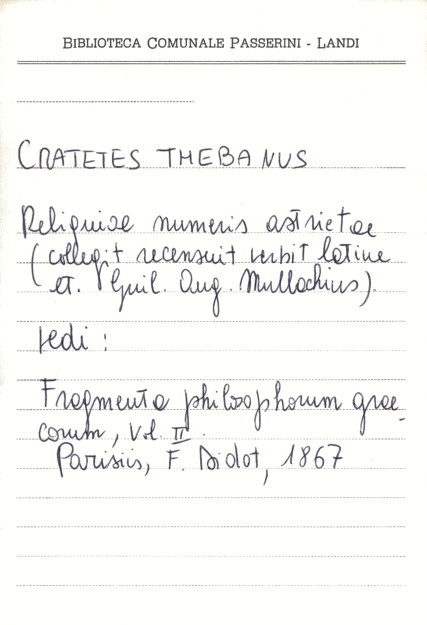 BIBLIOTECA COMUNALE PASSERINI - LANDI
CRATETES THEBANUS
Reliquiae numeris astrictae
(collegit recensuit vertit latine
et. Guil. Aug. Mullachius).
Vedi :
Fragmenta philosophorum grae_
corum, Vol. II.
Parisiis, F. Didot, 1867